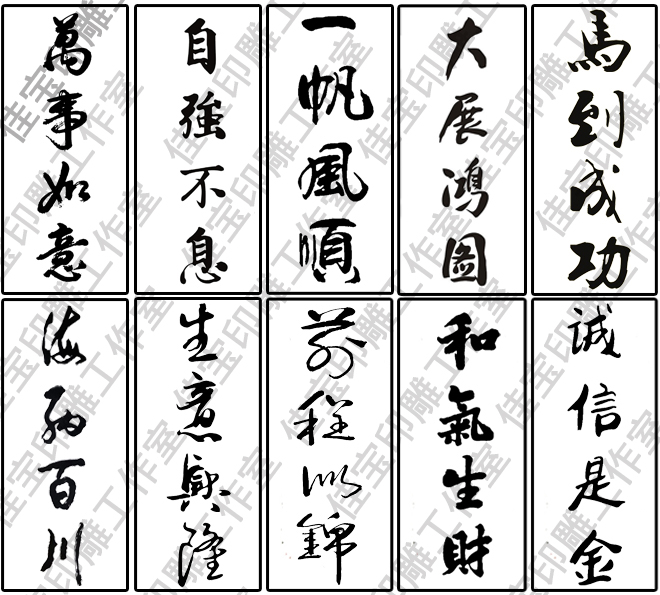 萬事如意
自強不息
一帆風順
大展鴻圖
馬到成功
海納百川
生意興隆
前程似錦
和氣生財
誠信是金
佳宝印雕工作室